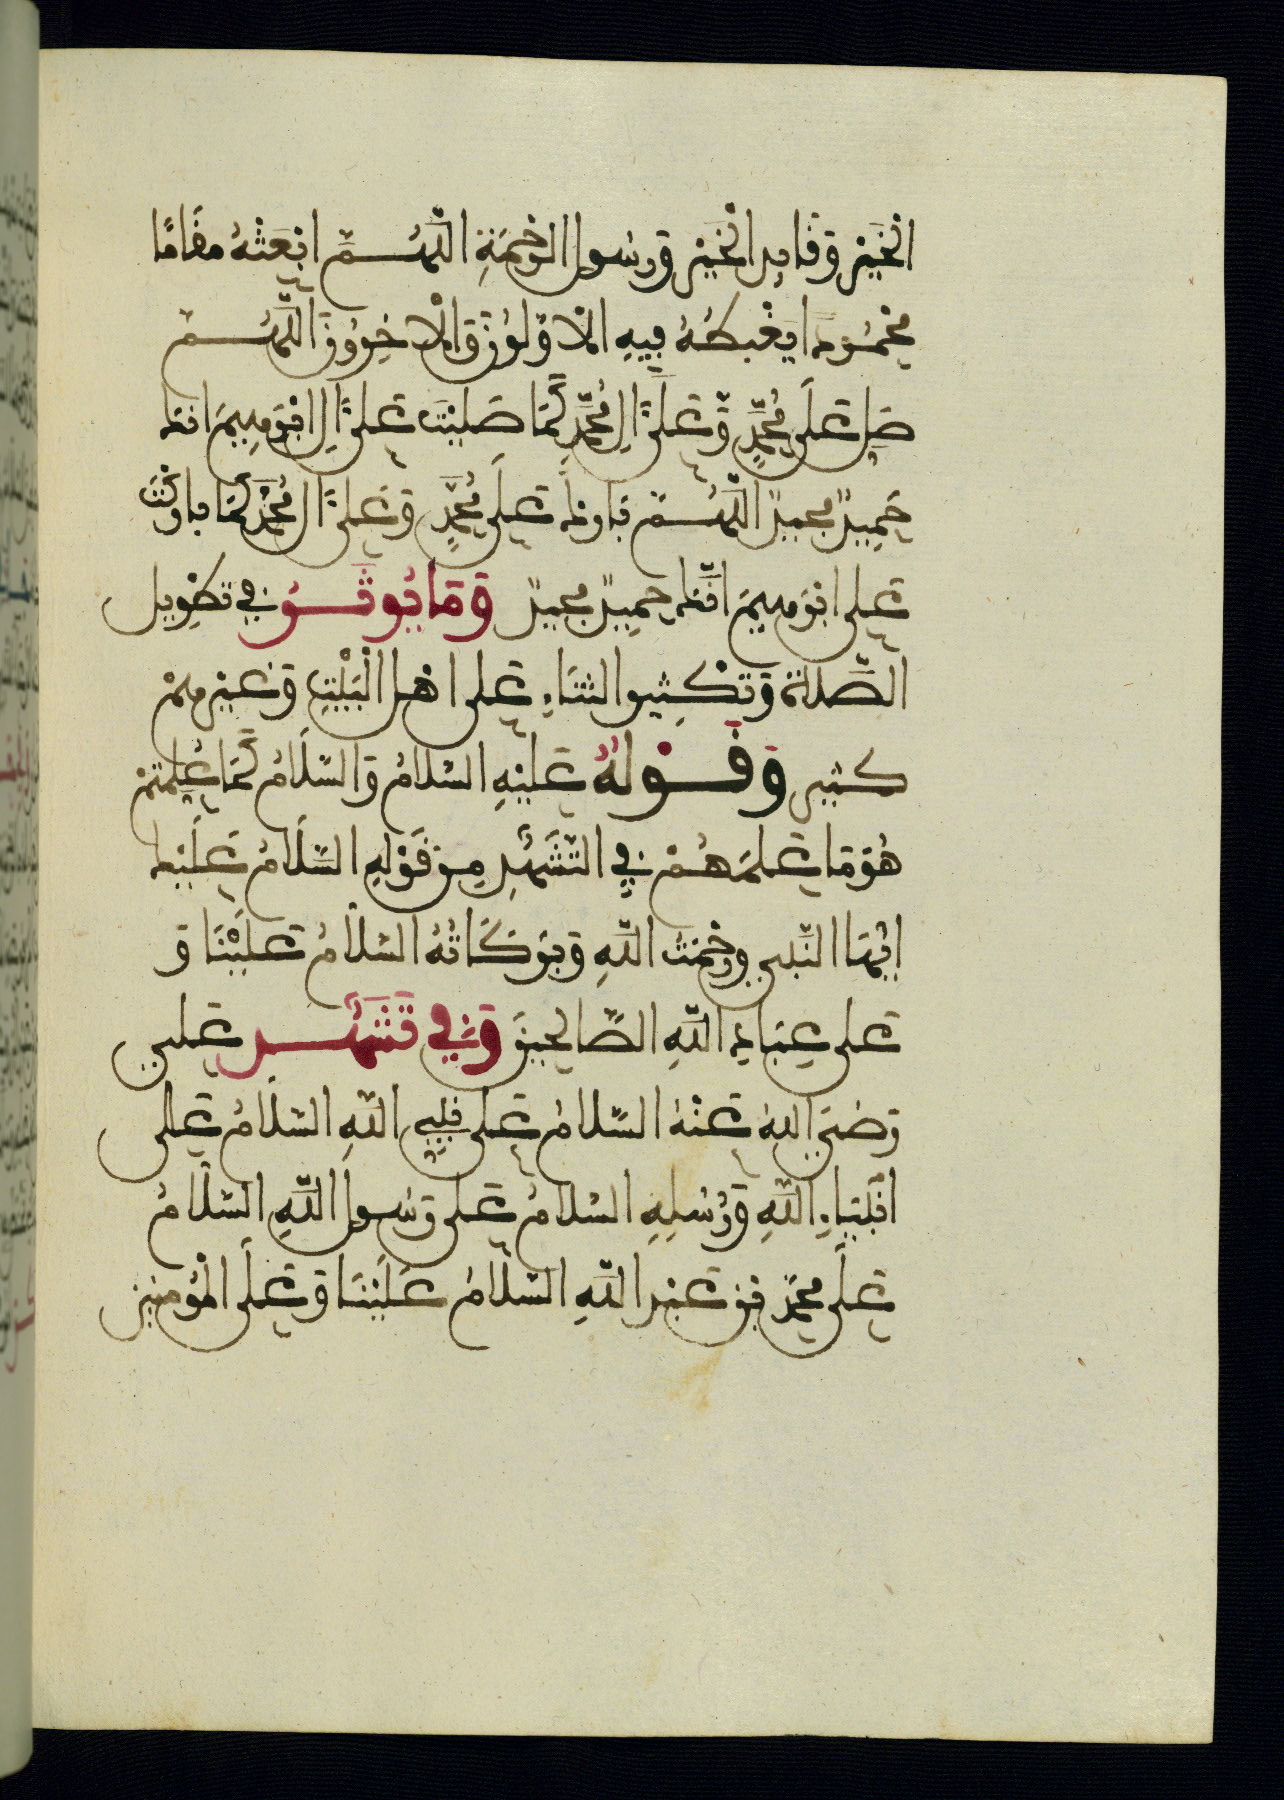 الْخَيْرِ وَقَائِدِ الْخَيْرِ وَرَسُولِ الرَّحْمَةِ اللَّهُمَّ ابْعَثْهُ مَقَامًا
مَحْمُودًا يَغْبِطُهُ فِيهِ الْأَوَّلُونَ وَالْآخِرُونَ اللَّهُمَّ
صَلِّ عَلَى مُحَمَّدٍ وَعَلَى آلِ مُحَمَّدٍ كَمَا صَلَّيْتَ عَلَى آلِ إِبْرَهِيمَ إِنَّكَ
حَمِيدٌ مَجِيدٌ اللَّهُمَّ بَارِكْ عَلَى مُحَمَّدٍ وَعَلَى آلِ مُحَمَّدٍ كَمَا بَارَكْتَ
عَلَى إِبْرَهِيمَ إِنَّكَ حَمِيدٌ مَجِيدٌ وَمَا يُوثَرُ فِي تَطْوِيلِ
الصَّلَاةِ وَتَكْثِيرِ الثَّنَاءِ عَلَى أَهْلِ الْبَيْتِ وَغَيْرِهِمْ
كَثِيرٌ وَقَوْلُهُ عَلَيْهِ السَّلَامُ وَالسَّلَامُ كَمَا عُلِّمْتُمْ
هُوَ مَا عَلَّمَهُمْ فِي التَّشَهُّدِ مِنْ قَوْلِهِ السَّلَامُ عَلَيْكَ
أَيُّهَا النَّبِيُّ وَرَحْمَتُ اللَّهِ وَبَرَكَاتُهُ السَّلَامُ عَلَيْنَا وَ
عَلَى عِبَادِ اللَّهِ الصَّالِحِينَ وَفِي تَشَهُّدِ عَلِيٍّ
رَضِيَ اللَّهُ عَنْهُ السَّلَامُ عَلَى نَبِيِّ اللَّهِ السَّلَامُ عَلَى
أَنْبِيَاءِ اللَّهِ وَرُسُلِهِ السَّلَامُ عَلَى رَسُولِ اللَّهِ السَّلَامُ
عَلَى مُحَمَّدِ بْنِ عَبْدِ اللَّهِ السَّلَامُ عَلَيْنَا وَعَلَى الْمُؤْمِنِينَ